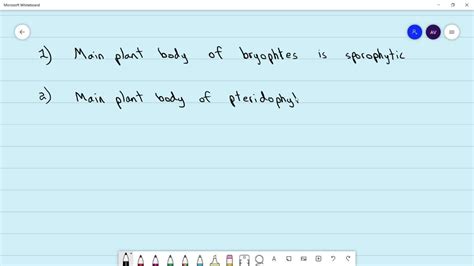 Microsoft Whiteboard
AV
1) Main plant body of bryophtes is sporophytic
2) Main plant body of pteridophy